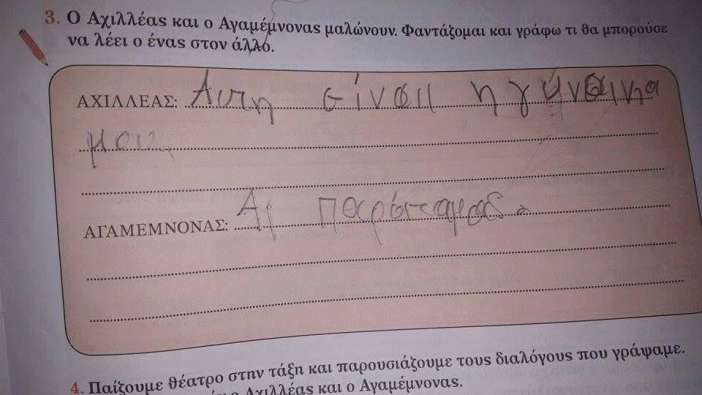 3. Ο Αχιλλέας και ο Αγαμέμνονας μαλώνουν. Φαντάζομαι και γράφω τι θα μπορούσε
να λέει ο ένας στον άλλο.
ΑΧΙΛΛΕΑΣ: Αυτη είναι η γυναίκα
μου.
ΑΓΑΜΕΜΝΟΝΑΣ: Αϊ παράτα μας.
4. Παίζουμε θέατρο στην τάξη και παρουσιάζουμε τους διαλόγους που γράψαμε.
ο Αχιλλέας και ο Αγαμέμνονας.